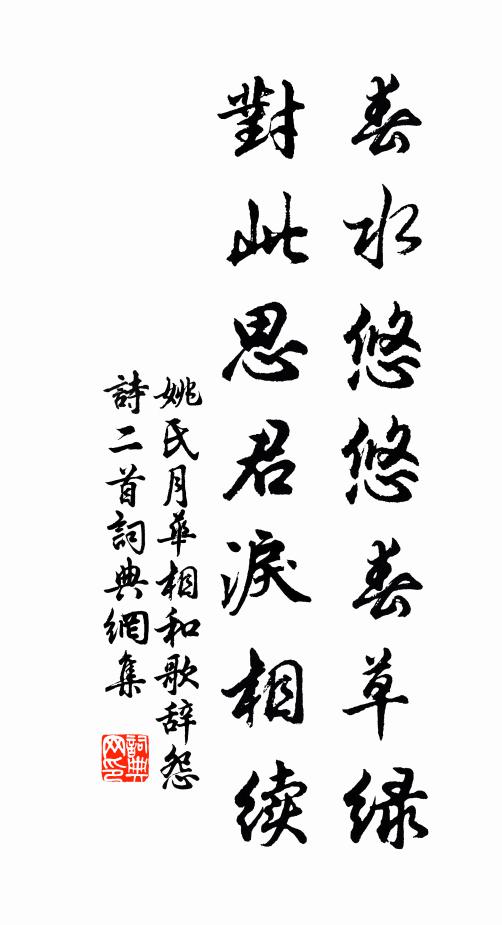 春水悠悠春草绿
對此思君淚相续
姚氏月華相和歌辞怨
詩二首詞典網集
詞典
网印